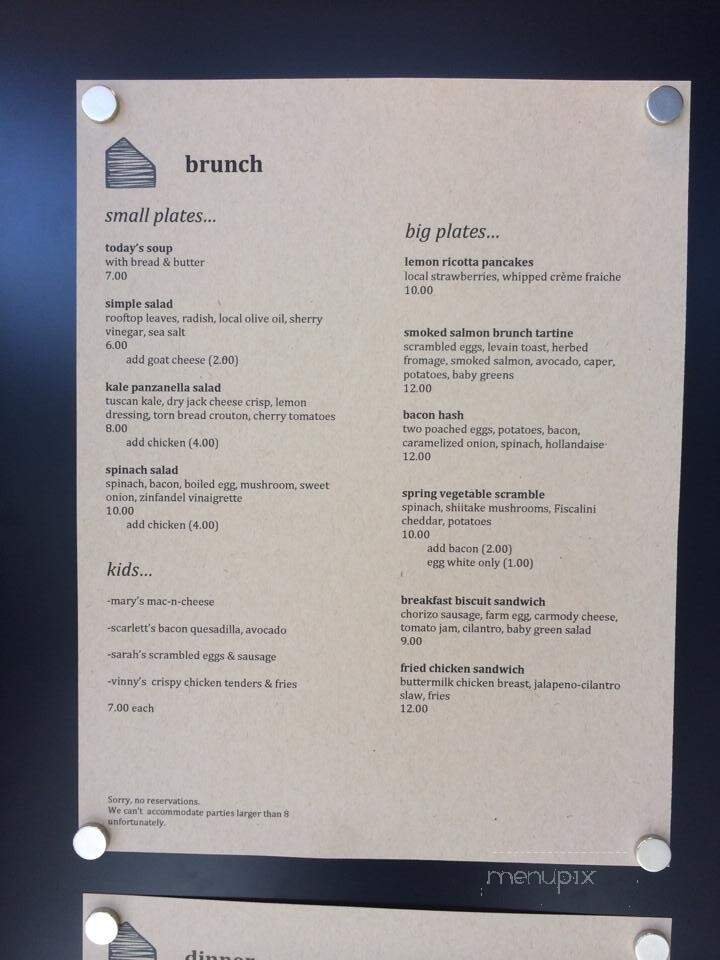 brunch
small plates...
today's soup
with bread & butter
7.00
simple salad
rooftop leaves, radish, local olive oil, sherry
vinegar, sea salt
6.00
add goat cheese (2.00)
kale panzanella salad
tuscan kale, dry jack cheese crisp, lemon
dressing, torn bread crouton, cherry tomatoes
8.00
add chicken (4.00)
spinach salad
spinach, bacon, boiled egg, mushroom, sweet
onion, zinfandel vinaigrette
10.00
add chicken (4.00)
kids...
-mary's mac-n-cheese
-scarlett's bacon quesadilla, avocado
-sarah's scrambled eggs & sausage
-vinny's crispy chicken tenders & fries
7.00 each
Sorry, no reservations.
We can't accommodate parties larger than 8
unfortunately.
big plates...
lemon ricotta pancakes
local strawberries, whipped crème fraiche
10.00
smoked salmon brunch tartine
scrambled eggs, levain toast, herbed
fromage, smoked salmon, avocado, caper,
potatoes, baby greens
12.00
bacon hash
two poached eggs, potatoes, bacon,
caramelized onion, spinach, hollandaise
12.00
spring vegetable scramble
spinach, shiitake mushrooms, Fiscalini
cheddar, potatoes
10.00
add bacon (2.00)
egg white only (1.00)
breakfast biscuit sandwich
chorizo sausage, farm egg, carmody cheese,
tomato jam, cilantro, baby green salad
9.00
fried chicken sandwich
buttermilk chicken breast, jalapeno-cilantro
slaw, fries
12.00
menupix
dinner